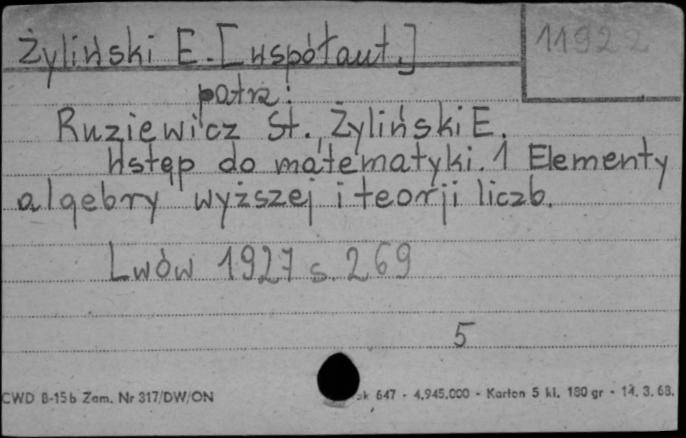 Żyliński E. [współaut.]
11922
patrz:
Ruziewicz St., Żyliński E.
Wstęp do matematyki. 1 Elementy
algebry wyższej i teorji liczb.
Lwów 1927 s. 269
5
CWD B-15b Zam. Nr 317/DW/ON
647 - 4.945.000 - Karton 5 kl. 180 gr - 14. 3. 68.